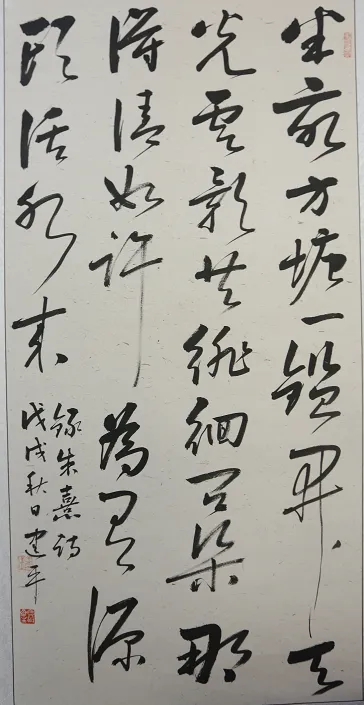 半亩方塘一鉴开天
光云影共徘徊问渠那
得清如许为有源
头活水来
录朱熹诗
戊戌秋日建平